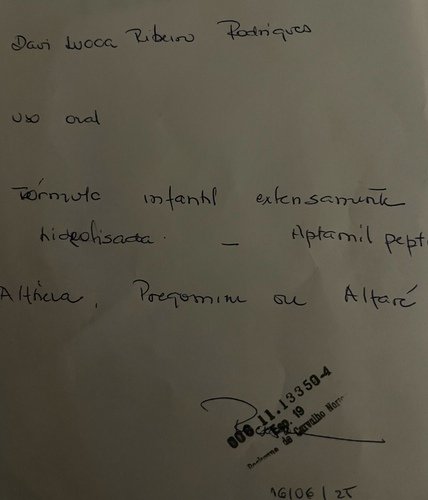 Davi Lucca Ribeiro Rodrigues
uso oral
Fórmula infantil extensamente
hidrolisada. — Aptamil pept
Althéra, Pregomin ou Alfaré
000.11.13350-4
Esp. 19
de Carvalho
16/06/25